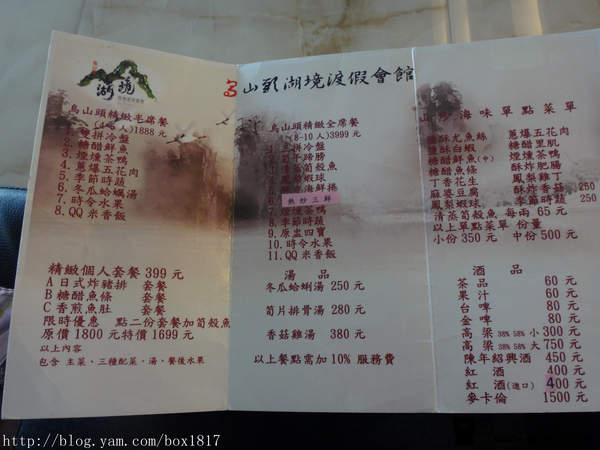 湖境
烏山頭湖境渡假會館
烏山頭精緻半席餐
(4-6人)1888元
1.雙拼冷盤
2.糖醋鮮魚
3.煙燻茶鴨
5.季節時蔬
6.冬瓜蛤蜊湯
7.時令水果
8.QQ米香飯
精緻個人套餐 399 元
A 日式炸豬排 套餐
B 糖醋魚條 套餐
C 香煎魚肚 套餐
限時優惠 點二份套餐加筍殼魚
原價1800元特價1699元
以上內容
包含 主菜、三種配菜、湯、餐後水果
烏山頭精緻全席餐
(8-10人)3999元
拼冷盤
牛蹄膀
筍殼魚
蝦球
海鮮捲
熱炒三鮮
煙燻茶鴨
8.季節時蔬
9.原盅四寶
10.時令水果
11.QQ米香飯
湯品
冬瓜蛤蜊湯 250 元
筍片排骨湯 280 元
香菇雞湯 380 元
以上餐點需加10% 服務費
山珍海味單點菜單
糖醋尤魚絲 蔥爆五花肉
糖酥白蝦 糖醋里肌
糖醋鮮魚(中) 煙燻茶鴨
糖醋魚條 酥炸肥腸
丁香花生 鳳梨雞丁
麻婆豆腐 酥炸香菇 250
鳳梨蝦球 季節時蔬 250
清蒸筍殼魚 每兩 65 元
以上單點菜單 份量
小份 350 元 中份 500 元
酒品
茶品 60 元
果汁 60 元
台啤 80 元
金啤 80 元
高梁 38% 58% 小 300 元
高梁 38% 58% 大 750 元
陳年紹興酒 450 元
紅酒 400 元
紅酒(進口) 400 元
麥卡倫 1500 元
http://blog.yam.com/box1817